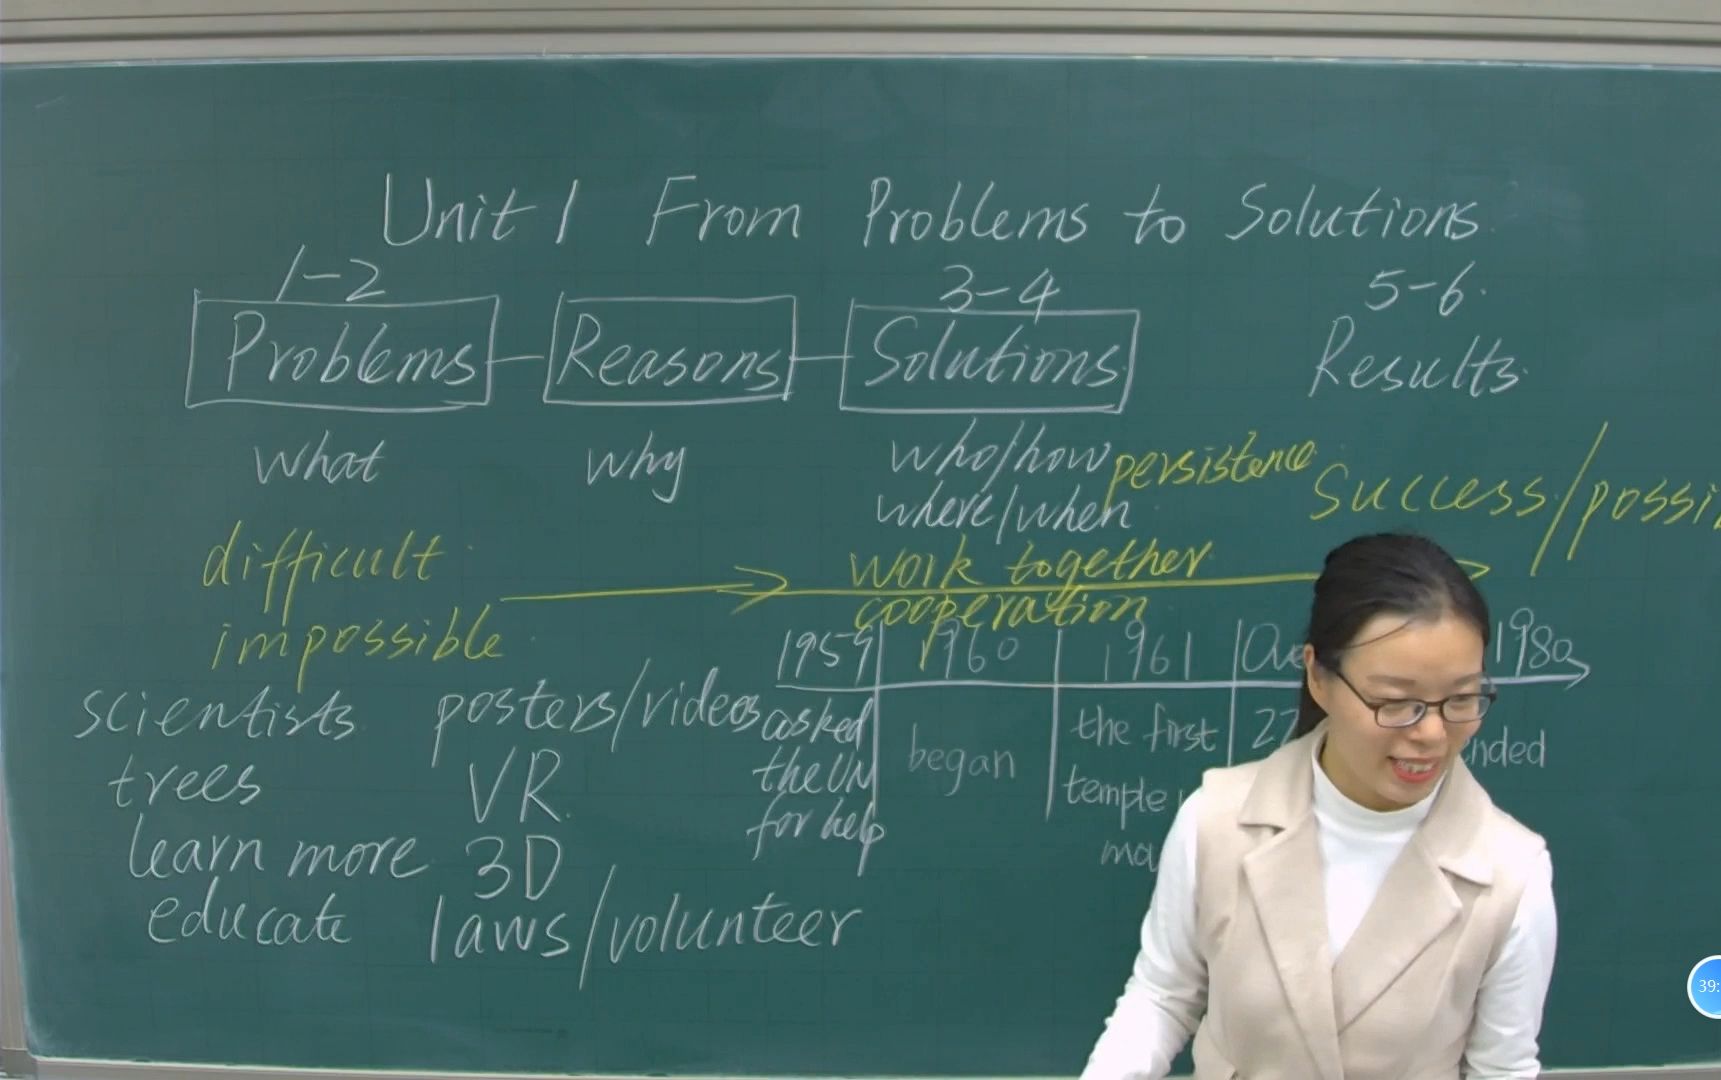 Unit 1 From Problems to Solutions
1-2 3-4 5-6
Problems Reasons Solutions Results
what why who/how persistence success/
where/when
difficult work together
impossible cooperation
1959 1960 1961 1980
scientists posters/videos asked began the first
trees VR the UN temple
learn more 3D for help
educate laws/volunteer
39: